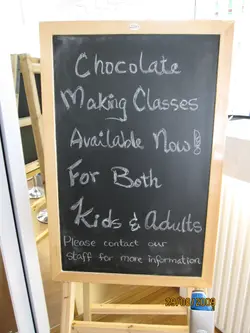 Chocolate
Making Classes
Available Now!
For Both
Kids & Adults
Please contact our
staff for more information